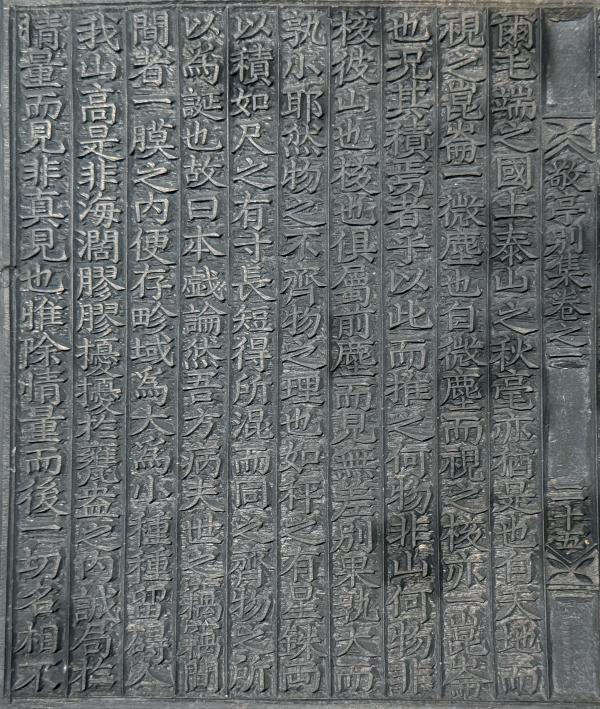 敬亭別集卷之二 二十五
爾毛端之國土泰山之秋毫亦猶是也自天地而
視之崑崙一微塵也自微塵而視之核亦一崑崙
也況其積焉者乎以此而推之何物非山何物非
核彼山也核也俱屬前塵而見無差別果孰大而
孰小耶然物之不齊物之理也如秤之有星銖両
以積如尺之有寸長短得所混而同之齊物之所
以為誕也故曰本戱論然吾方病夫世之間
間者一膜之內便存畛域為大為小種種留碍人
我山高是非海濶膠膠擾擾於甕盎之內誠局於
情量而見非真見也惟除情量而後一切名相不